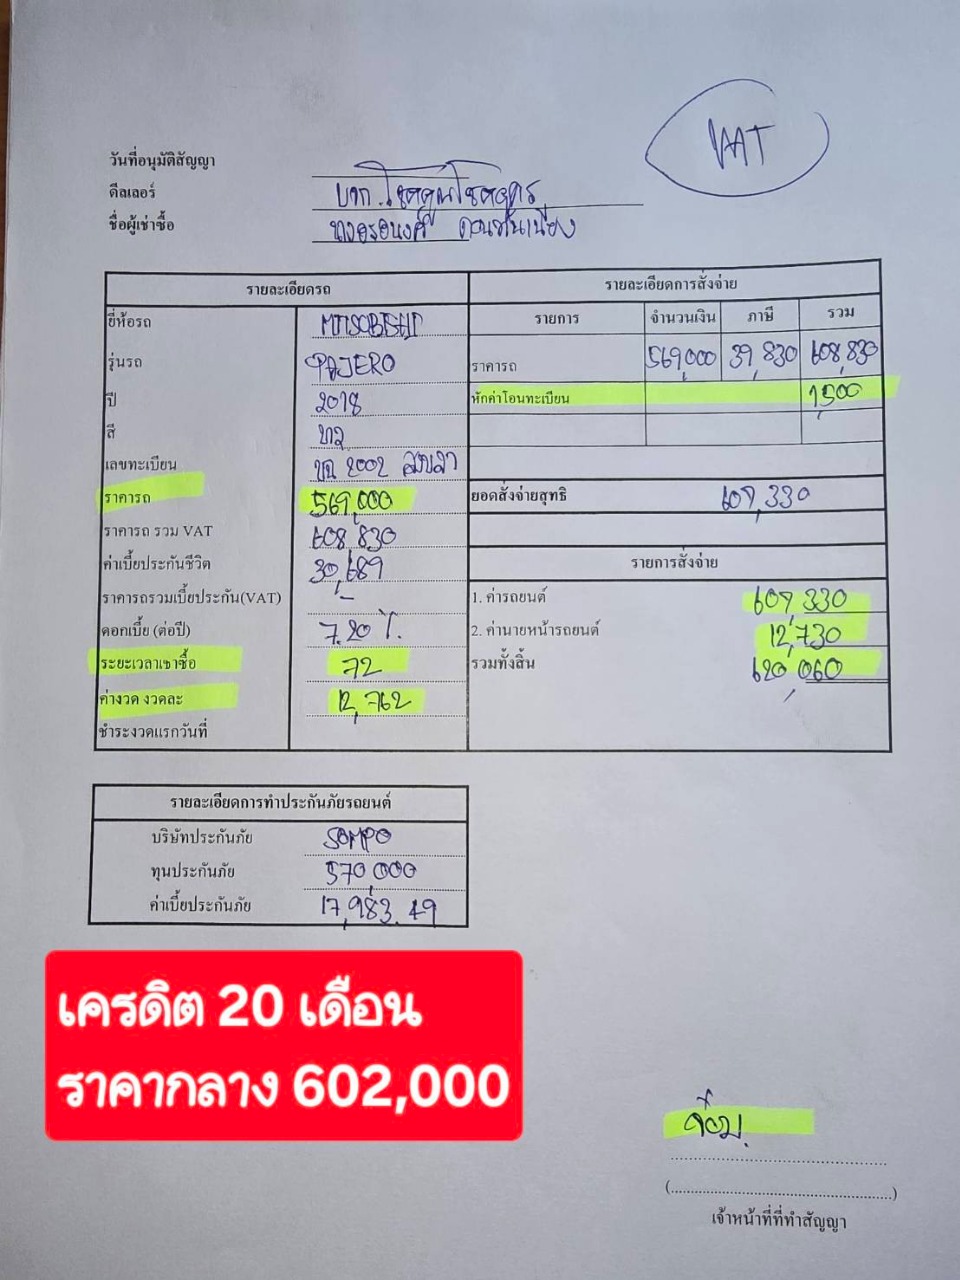 VAT
วันที่อนุมัติสัญญา
ดีลเลอร์ บจก. โชคคูณโชคอุดร
ชื่อผู้เช่าซื้อ
รายละเอียดรถ
ยี่ห้อรถ MITSUBISHI
รุ่นรถ PAJERO
ปี 2018
สี ขาว
เลขทะเบียน 2002 สงขลา
ราคารถ 569,000
ราคารถ รวม VAT 608,830
ค่าเบี้ยประกันชีวิต 30,689
ราคารถรวมเบี้ยประกัน(VAT) -
ดอกเบี้ย (ต่อปี) 7.20 %.
ระยะเวลาเช่าซื้อ 72
ค่างวด งวดละ 12,762
ชำระงวดแรกวันที่
รายละเอียดการสั่งจ่าย
รายการ จำนวนเงิน ภาษี รวม
ราคารถ 569,000 39,830 608,830
หักค่าโอนทะเบียน 1,500
ยอดสั่งจ่ายสุทธิ 607,330
รายการสั่งจ่าย
1. ค่ารถยนต์ 607,330
2. ค่านายหน้ารถยนต์ 12,730
รวมทั้งสิ้น 620,060
รายละเอียดการทำประกันภัยรถยนต์
บริษัทประกันภัย SOMPO
ทุนประกันภัย 570,000
ค่าเบี้ยประกันภัย 17,983.49
เครดิต 20 เดือน
ราคากลาง 602,000
(..........)
เจ้าหน้าที่ที่ทำสัญญา